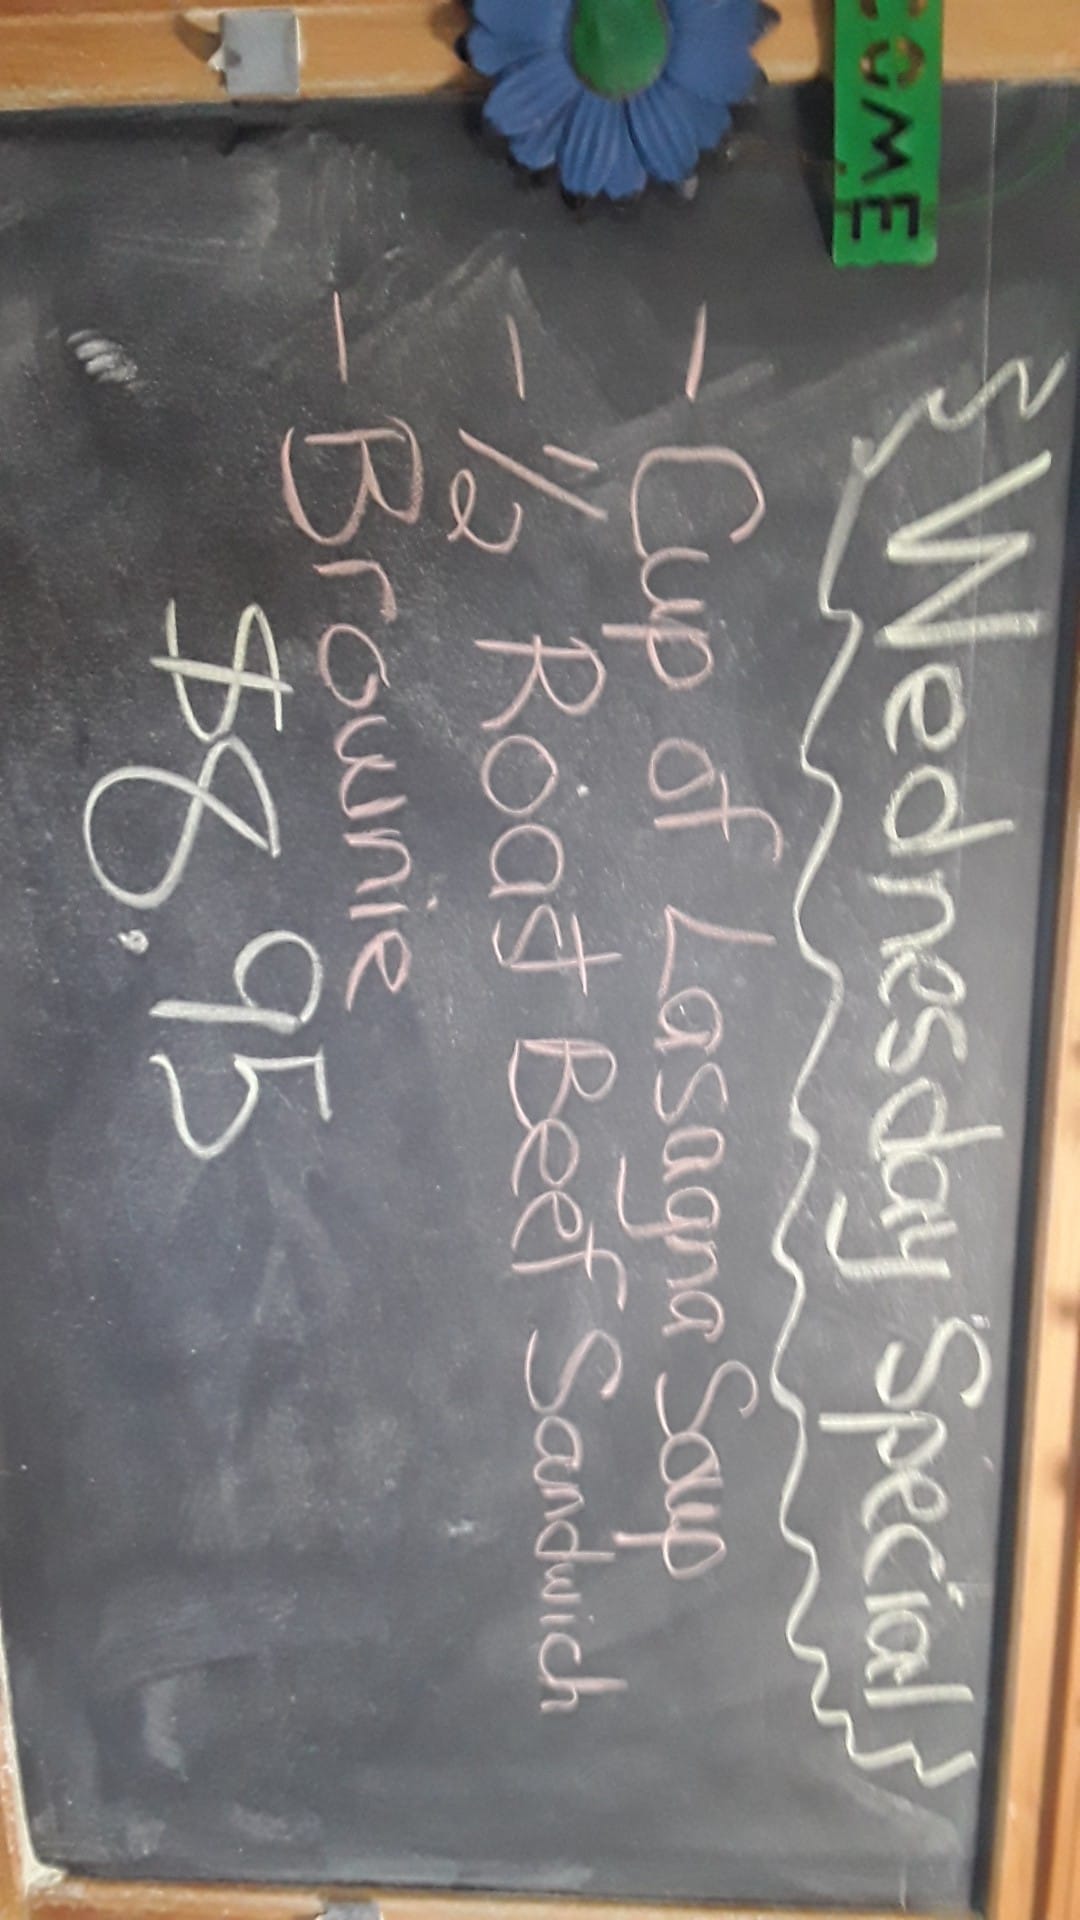 COME
Wednesday Special
- Cup of Lasagna Soup
- 1/2 Roast Beef Sandwich
- Brownie
$8.95